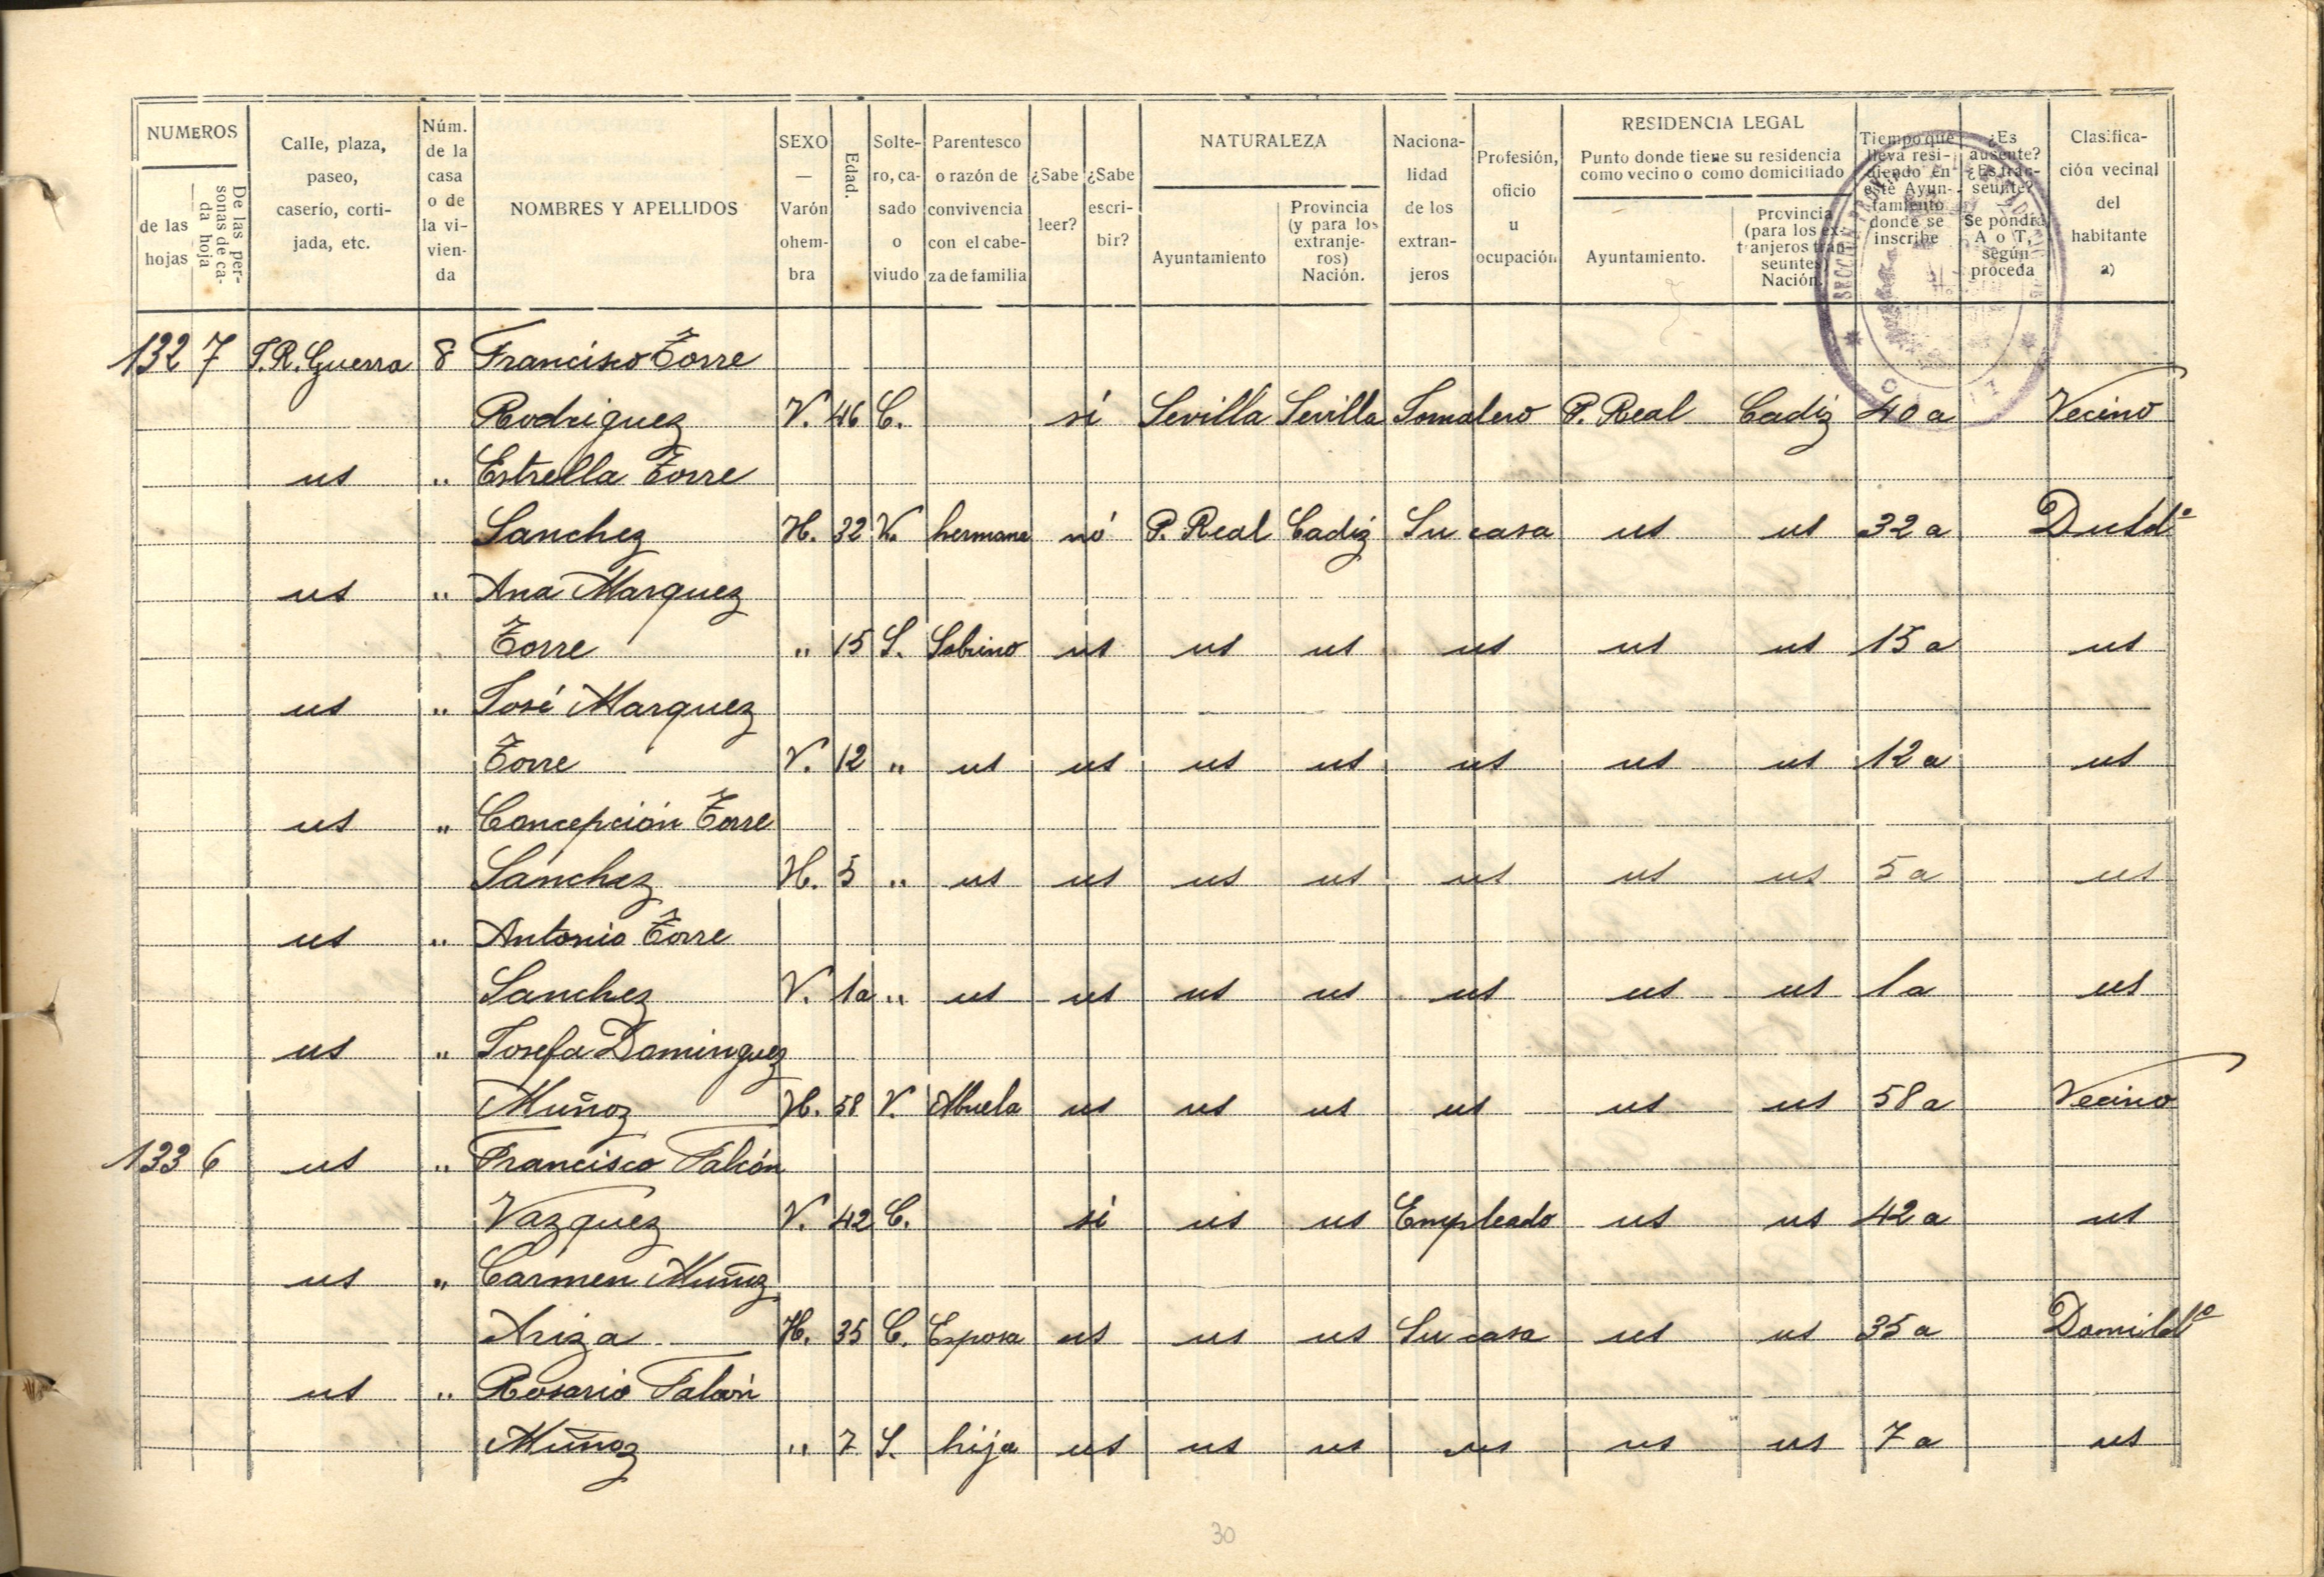 NUMEROS
de las hojas
De las personas de cada hoja
Calle, plaza, paseo, caserío, cortijada, etc.
Núm. de la casa o de la vivienda
NOMBRES Y APELLIDOS
SEXO — Varón o hembra
Edad.
Soltero, casado o viudo
Parentesco o razón de convivencia con el cabeza de familia
¿Sabe leer?
¿Sabe escribir?
NATURALEZA
Ayuntamiento
Provincia (y para los extranjeros) Nación.
Nacionalidad de los extranjeros
Profesión, oficio u ocupación
RESIDENCIA LEGAL
Punto donde tiene su residencia como vecino o como domiciliado
Ayuntamiento.
Provincia (para los extranjeros transeuntes) Nación.
Tiempo que lleva residiendo en este Ayuntamiento donde se inscribe
¿Es ausente? ¿Es transeunte? Se pondrá A o T, según proceda
Clasificación vecinal del habitante a)
132 7 T.R. Guerra 8 Francisco Torre
Rodriguez V. 46 C. sí Sevilla Sevilla Jornalero P. Real Cadiz 40 a Vecino
us " Estrella Torre
Sanchez H. 32 V. hermana nó P. Real Cadiz Su casa us us 32 a
us " Ana Marquez
Torre " 15 S. Sobrino us us us us us us 15 a us
us " José Marquez
Torre V. 12 " us us us us us us us 12 a us
us " Concepción Torre
Sánchez H. 5 " us us us us us us us 5 a us
us " Antonio Torre
Sanchez V. 1a " us us us us us us us 1 a us
us " Josefa Dominguez
Muñoz H. 58 V. Abuela us us us us us us 58 a Vecino
133 6 us " Francisco Falcón
Vazquez V. 42 C. sí us us Empleado us us 42 a us
us " Carmen Muñoz
Ariza H. 35 C. Esposa us us us Su casa us us 35 a Domildº
us " Rosario Falcón
Muñoz " 7 S. hija us us us us us us 7 a us
30